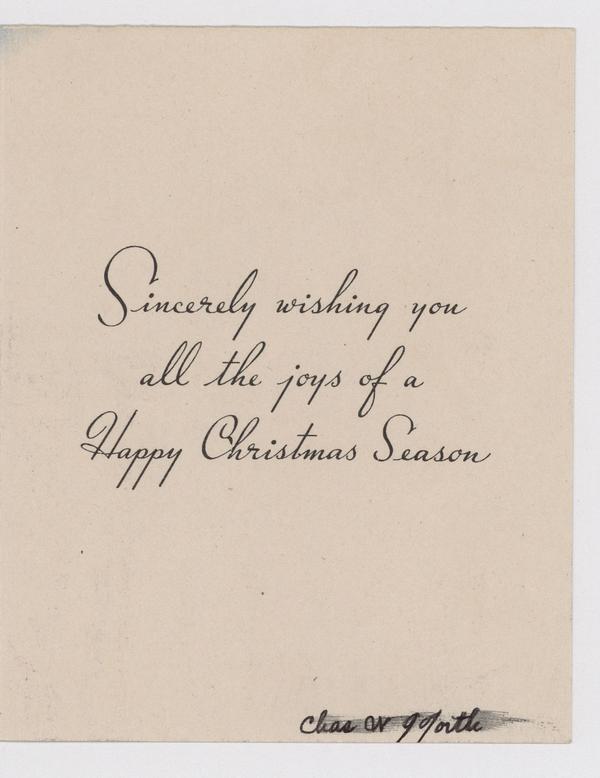 Sincerely wishing you
all the joys of a
Happy Christmas Season
Chas W North